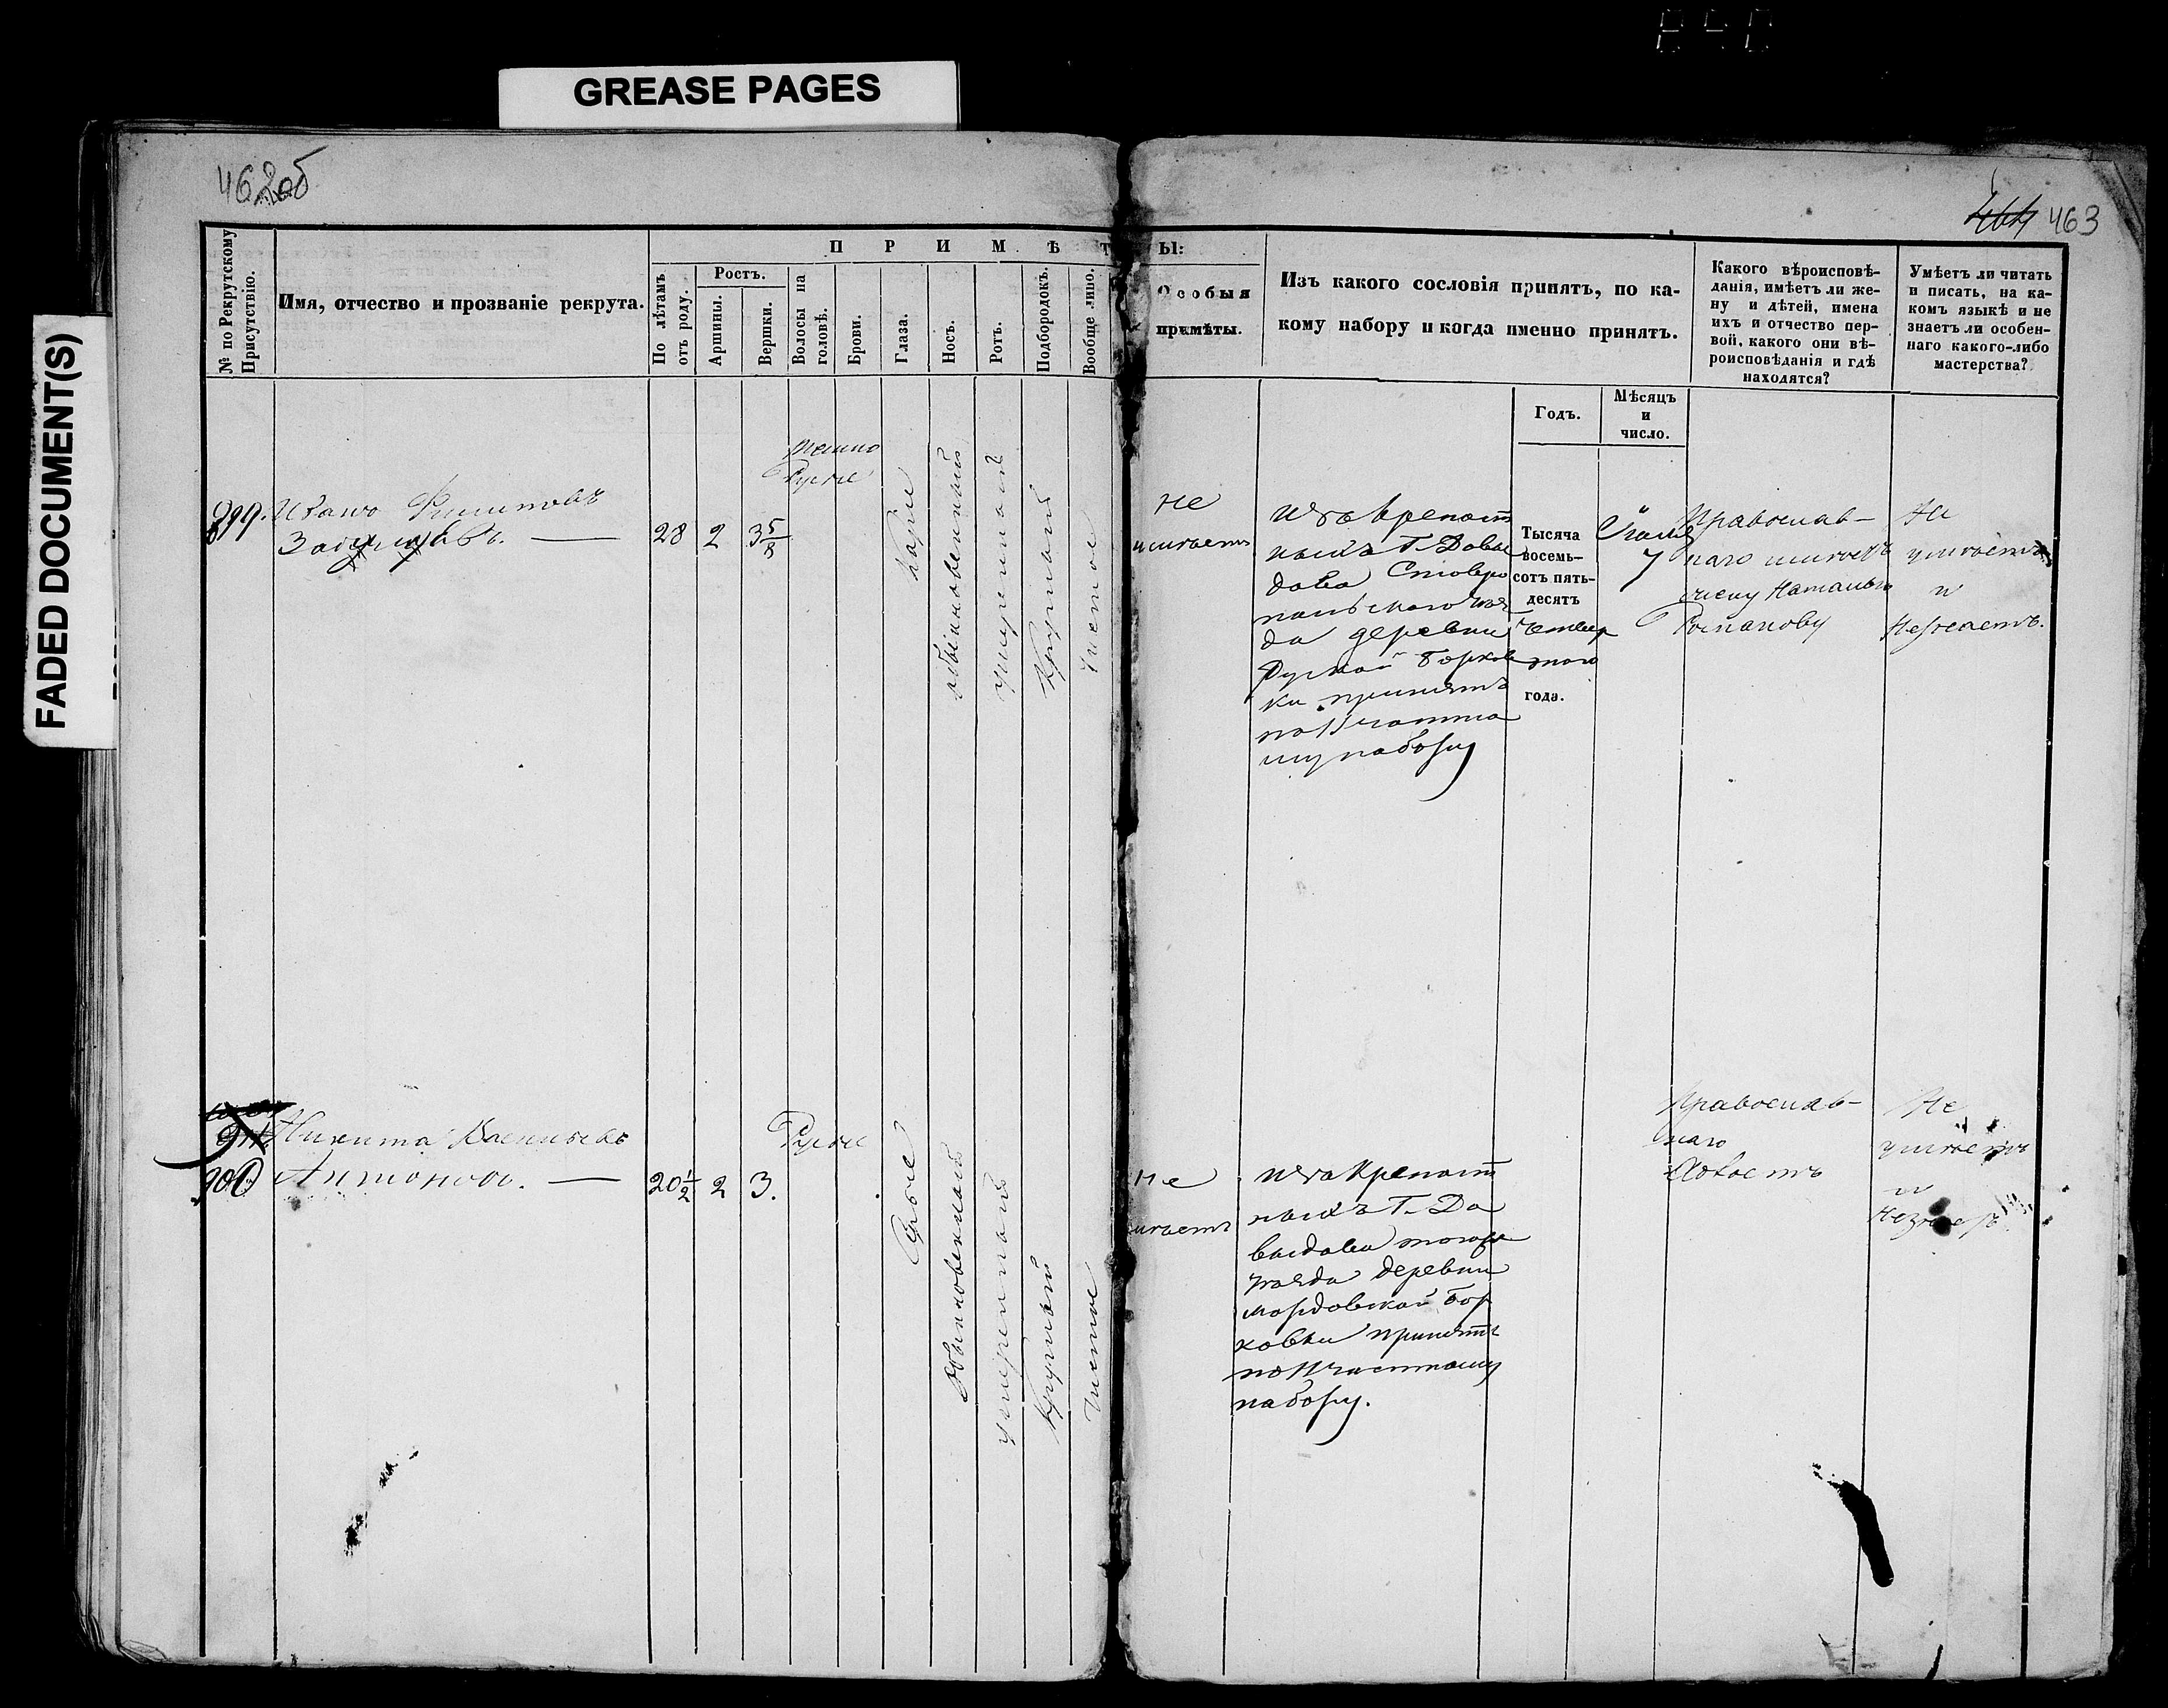 GREASE PAGES
FADED DOCUMENT(S)
462об
463
№ по Рекрутскому
Присутствію.
Имя, отчество и прозваніе рекрута.
ПРИМѢТЫ:
По лѣтамъ
отъ роду.
Ростъ.
Аршины.
Вершки.
Волосы на
головѣ.
Брови.
Глаза.
Носъ.
Ротъ.
Подбородокъ.
Вообще лицо.
Особыя
примѣты.
Изъ какого сословія принятъ, по ка-
кому набору и когда именно принятъ.
Какого вѣроисповѣ-
данія, имѣетъ ли же-
ну и дѣтей, имена
ихъ и отчество пер-
вой, какого они вѣ-
роисповѣданія и гдѣ
находятся?
Умѣетъ ли читать
и писать, на ка-
комъ языкѣ и не
знаетъ ли особен-
наго какого-либо
мастерства?
Годъ.
Мѣсяцъ
и
число.
899.
Иванъ Филиповъ
28
2
3 5/8
темно
Русые
карие
обыкновенный
умеренной
круглой
чистое
Не
имѣетъ
изъ крепост
ныхъ Г. Давы
дова Ставро
польскаго уез
да деревни
Русской Борков
ки принятъ
по 11 частно
му набору
Тысяча
восемь-
сотъ пять-
десятъ
четвер
таго
года.
7
Православ-
наго имѣетъ
жену Наталью
Романову
Не
умѣетъ
и
Незнаетъ.
900
Никита Васильевъ
Антоновъ.
20 1/2
2
3.
Русые
Серые
Обыкновенной
умеренной
круглой
чистое
Не
имѣетъ
изъ крепост
ныхъ Г. Да
выдова тогоже
уезда деревни
Мордовской Бор
ковки принятъ
по 11 частному
набору.
Православ-
наго
Холостъ
Не
умѣетъ
и